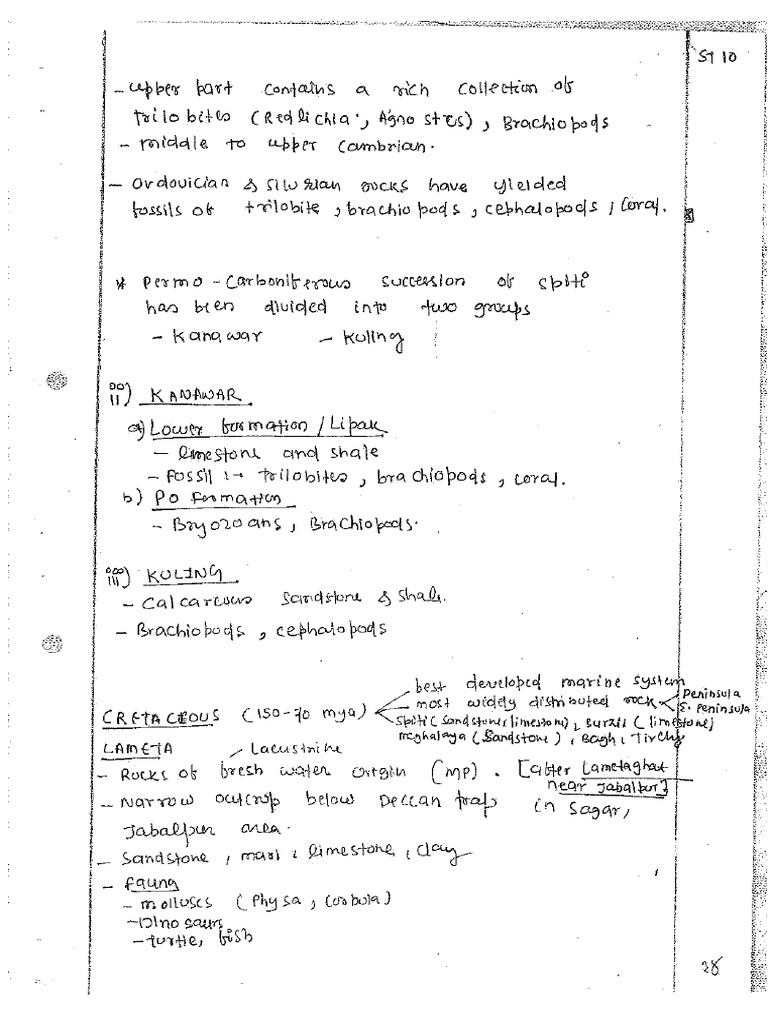 ST 10
- Upper part contains a rich collection of
trilobites (Redlichia, Agnostus), Brachiopods
- middle to upper Cambrian.
- Ordovician & Silurian rocks have yielded
fossils of trilobite, brachiopods, cephalopods, coral.
* Permo - Carboniferous succession of Spiti
has been divided into two groups
- Kanawar - Kuling
ii) KANAWAR
a) Lower formation / Lipak
- limestone and shale
- Fossil :→ trilobites, brachiopods, coral.
b) PO Formation
- Bryozoans, Brachiopods.
iii) KULING
- Calcareous Sandstone & Shale.
- Brachiopods, cephalopods
best developed marine system
CRETACEOUS (150-70 mya) most widly distributed rock Peninsula
E. Peninsula
Spiti (Sandstone, limestone), (limestone)
meghalaya (Sandstone), Bagh, Tirchy
LAMETA / Lacustrine
- Rocks of fresh water origin (MP). [after Lametaghat
near Jabalpur]
- Narrow outcrop below Deccan trap in Sagar,
Jabalpur area.
- Sandstone, marl, limestone, clay
- Fauna
- molluscs (Physa, Corbula)
- Dino saurs
- turtle, fish
28